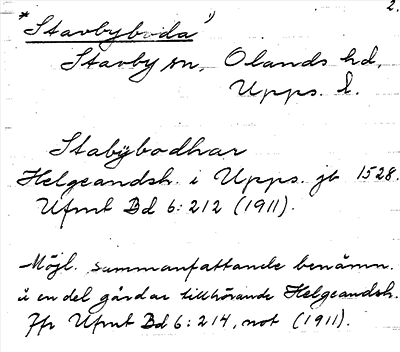 2.
*Stavbyboda"
Stavby sn, Olands hd,
Upps. l.
Stabÿbodhar
Helgeandsh. i Upps. jb 1528.
Ufmt Bd 6:212 (1911).
Möjl. sammanfattande benämn.
å en del gårdar tillhörande Helgeandsh.
Jfr Ufmt Bd 6:214, not (1911).